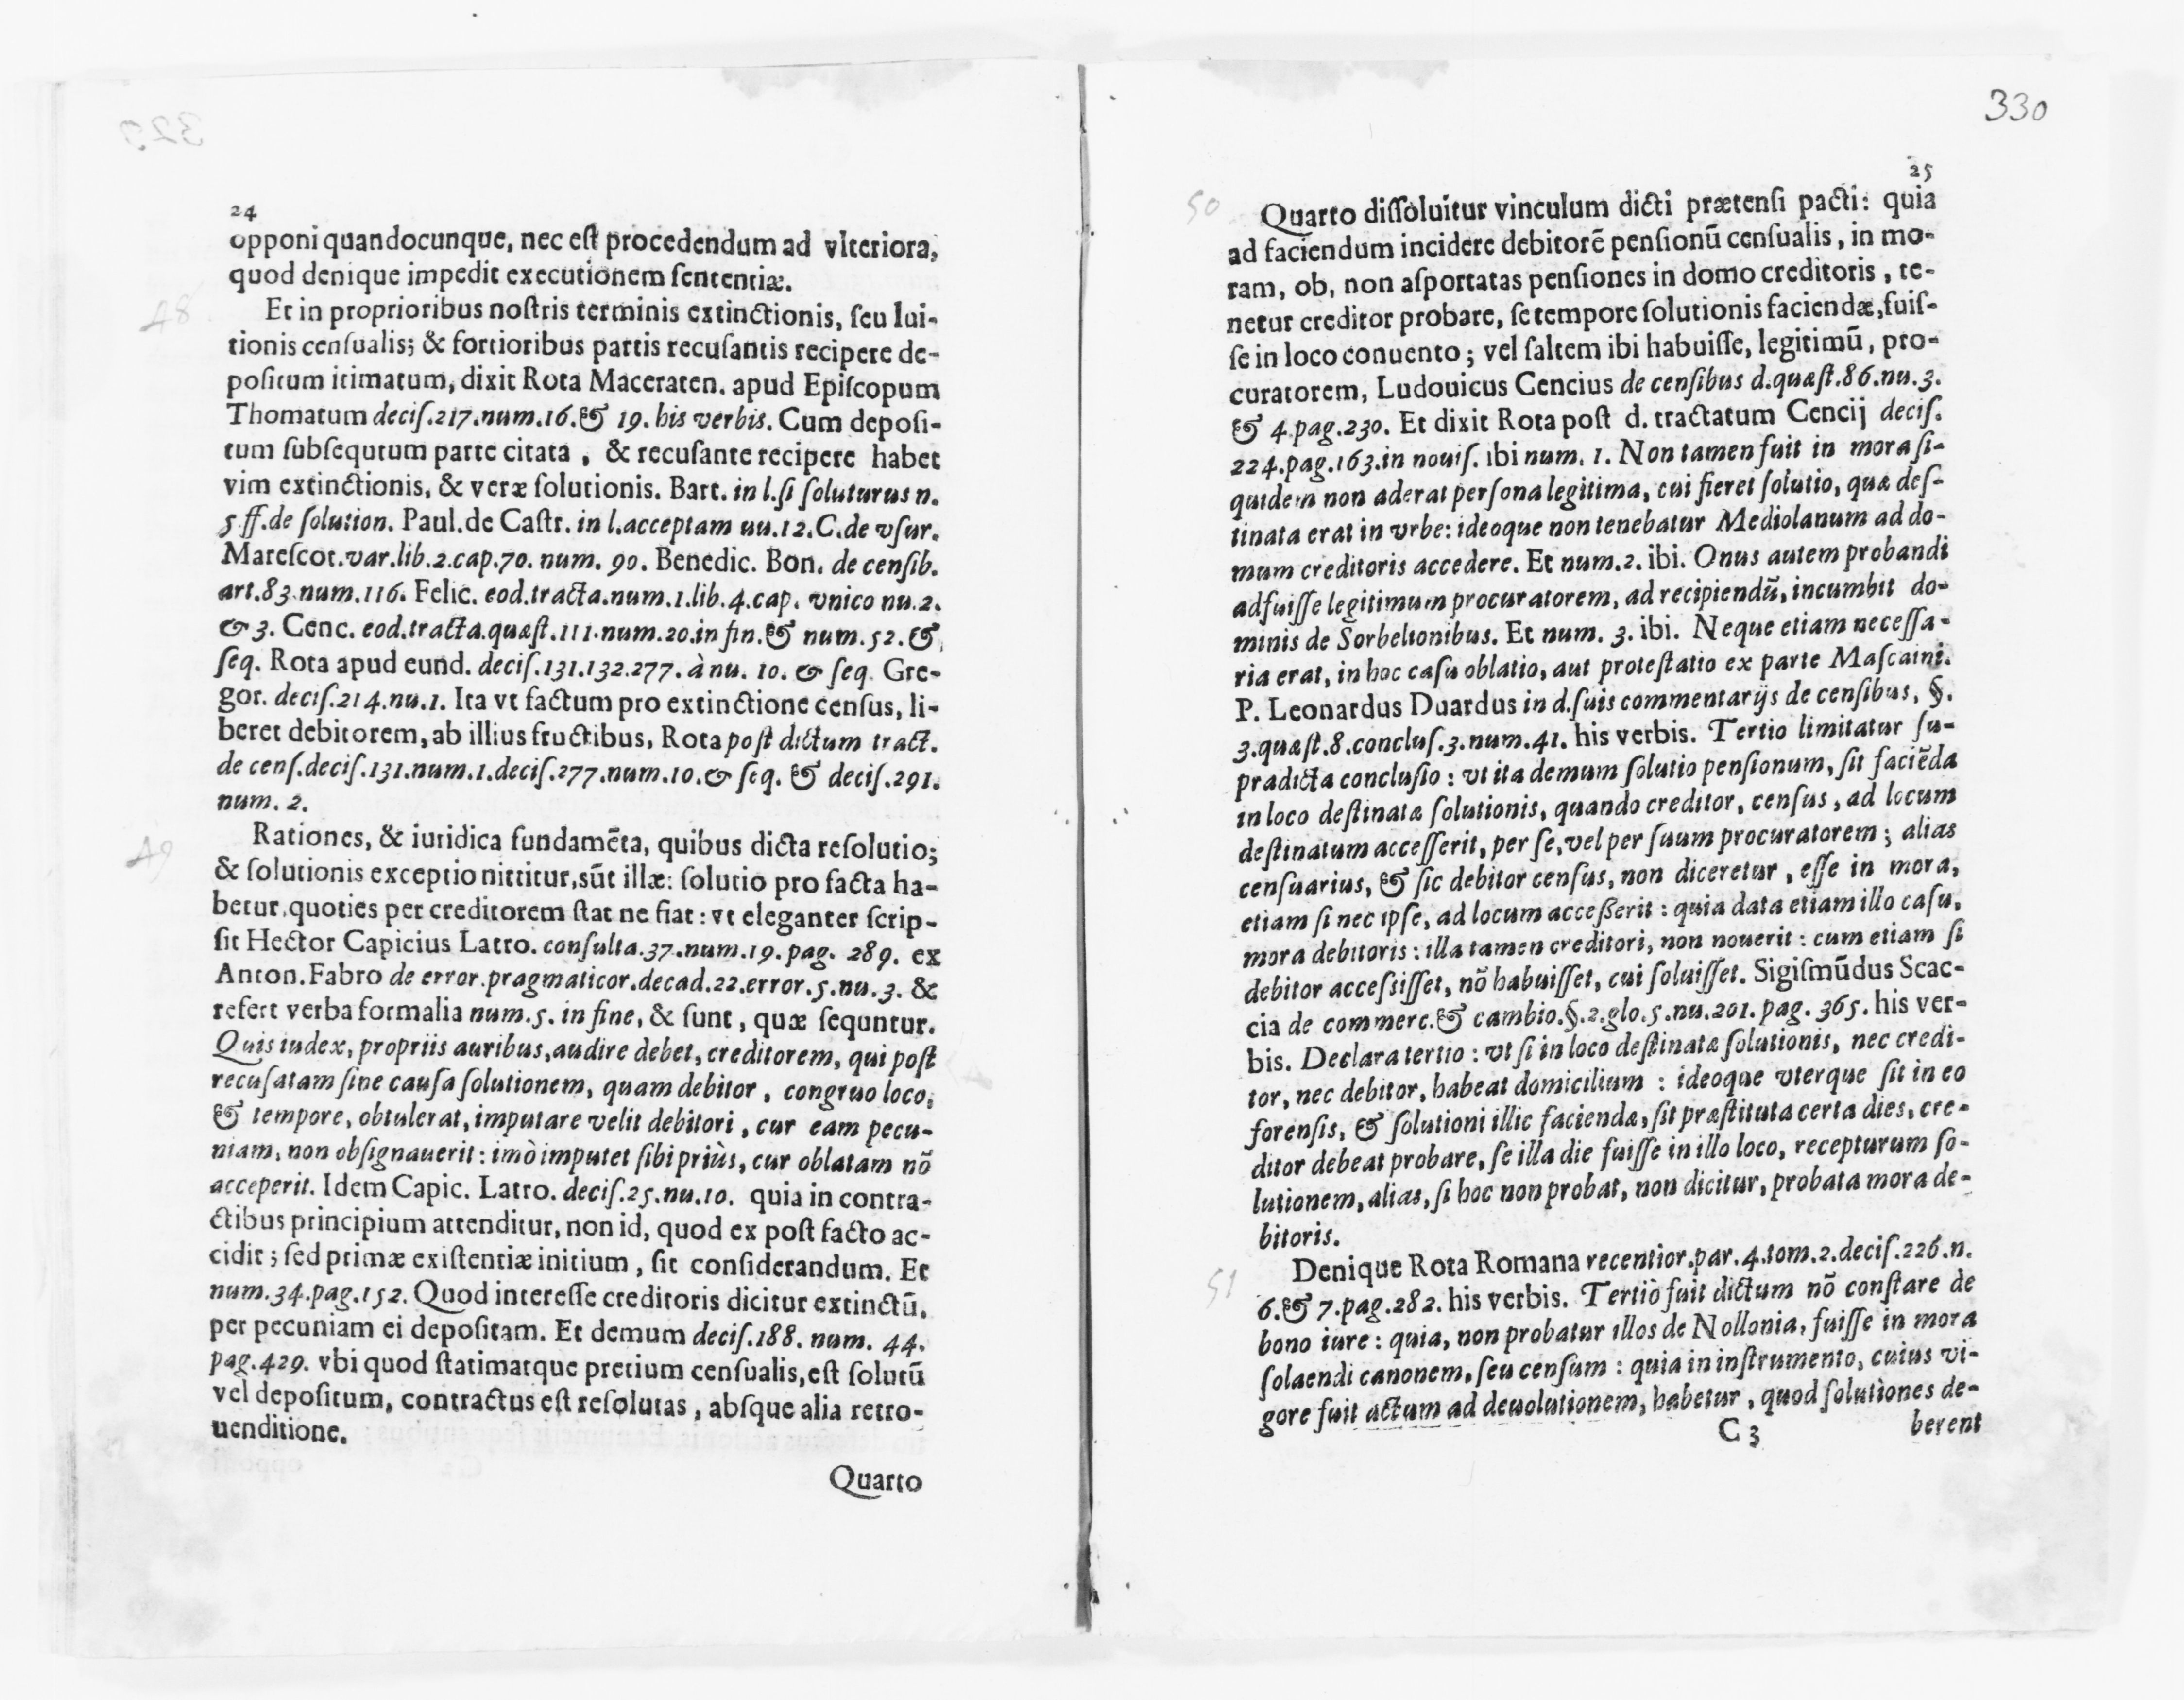 329
24
opponi quandocunque, nec eſt procedendum ad vlteriora,
quod denique impedit executionem ſententiæ.
48
Et in proprioribus noſtris terminis extinctionis, ſeu lui-
tionis cenſualis; & fortioribus partis recuſantis recipere de-
poſitum itimatum, dixit Rota Maceraten. apud Epiſcopum
Thomatum deciſ.217.num.16.& 19. his verbis. Cum depoſi-
tum ſubſequtum parte citata, & recuſante recipere habet
vim extinctionis, & veræ ſolutionis. Bart. in l.ſi ſoluturus n.
5.ff.de ſolution. Paul.de Caſtr. in l.acceptam nu.12.C.de vſur.
Mareſcot.var.lib.2.cap.70. num. 90. Benedic. Bon. de cenſib.
art.83.num.116. Felic. eod.tracta.num.1.lib.4.cap. vnico nu.2.
& 3. Cenc. eod.tracta.quæſt.111.num.20.in fin.& num.52.&
ſeq. Rota apud eund. deciſ.131.132.277. à nu. 10. & ſeq. Gre-
gor. deciſ.214.nu.1. Ita vt factum pro extinctione cenſus, li-
beret debitorem, ab illius fructibus, Rota poſt dictum tract.
de cenſ.deciſ.131.num.1.deciſ.277.num.10.& ſeq. & deciſ.291.
num. 2.
49
Rationes, & iuridica fundamēta, quibus dicta reſolutio;
& ſolutionis exceptio nittitur,sūt illæ: ſolutio pro facta ha-
betur,quoties per creditorem ſtat ne fiat: vt eleganter ſcrip-
ſit Hector Capicius Latro. conſulta.37.num.19.pag. 289. ex
Anton.Fabro de error.pragmaticor.decad.22.error.5.nu.3. &
refert verba formalia num.5. in fine, & ſunt, quæ ſequntur.
Quis iudex, propriis auribus,audire debet, creditorem, qui poſt
recuſatam ſine cauſa ſolutionem, quam debitor, congruo loco,
& tempore, obtulerat, imputare velit debitori, cur eam pecu-
niam, non obſignauerit: imò imputet ſibi priùs, cur oblatam nō
acceperit. Idem Capic. Latro. deciſ.25.nu.10. quia in contra-
ctibus principium attenditur, non id, quod ex poſt facto ac-
cidit; ſed primæ exiſtentiæ initium, ſit conſiderandum. Et
num.34.pag.152. Quod intereſſe creditoris dicitur extinctū,
per pecuniam ei depoſitam. Et demum deciſ.188. num. 44.
pag.429. vbi quod ſtatimatque pretium cenſualis, eſt ſolutū
vel depoſitum, contractus eſt reſolutas, abſque alia retro-
uenditione.
Quarto
330
25
50
Quarto diſſoluitur vinculum dicti prætenſi pacti: quia
ad faciendum incidere debitorē penſionū cenſualis, in mo-
ram, ob, non aſportatas penſiones in domo creditoris, te-
netur creditor probare, ſe tempore ſolutionis faciendæ,fuiſ-
ſe in loco conuento; vel ſaltem ibi habuiſſe, legitimū, pro-
curatorem, Ludouicus Cencius de cenſibus d.quæſt.86.nu.3.
& 4.pag.230. Et dixit Rota poſt d. tractatum Cencij deciſ.
224.pag.163.in nouiſ. ibi num. 1. Non tamen fuit in mora ſi-
quidem non aderat perſona legitima, cui fieret ſolutio, quæ deſ-
tinata erat in vrbe: ideoque non tenebatur Mediolanum ad do-
mum creditoris accedere. Et num.2. ibi. Onus autem probandi
adfuiſſe legitimum procuratorem, ad recipiendū, incumbit do-
minis de Sorbelionibus. Et num. 3. ibi. Neque etiam neceſſa-
ria erat, in hoc caſu oblatio, aut proteſtatio ex parte Maſcaini.
P. Leonardus Duardus in d.ſuis commentarijs de cenſibus, §.
3.quæſt.8.concluſ.3.num.41. his verbis. Tertio limitatur ſu-
pradicta concluſio: vt ita demum ſolutio penſionum, ſit faciēda
in loco deſtinatæ ſolutionis, quando creditor, cenſus, ad locum
deſtinatum acceſſerit, per ſe, vel per ſuum procuratorem; alias
cenſuarius, & ſic debitor cenſus, non diceretur, eſſe in mora,
etiam ſi nec ipſe, ad locum acceßerit: quia data etiam illo caſu,
mora debitoris: illa tamen creditori, non nouerit: cum etiam ſi
debitor acceſsiſſet, nō habuiſſet, cui ſoluiſſet. Sigiſmūdus Scac-
cia de commerc.& cambio.§.2.glo.5.nu.201.pag. 365. his ver-
bis. Declara tertio: vt ſi in loco deſtinatæ ſolutionis, nec credi-
tor, nec debitor, habeat domicilium: ideoque vterque ſit in eo
forenſis, & ſolutioni illic faciendæ, ſit præſtituta certa dies, cre-
ditor debeat probare, ſe illa die fuiſſe in illo loco, recepturum ſo-
lutionem, alias, ſi hoc non probat, non dicitur, probata mora de-
bitoris.
51
Denique Rota Romana recentior.par.4.tom.2.deciſ.226.n.
6.& 7.pag.282. his verbis. Tertiò fuit dictum nō conſtare de
bono iure: quia, non probatur illos de Nollonia, fuiſſe in mora
ſolaendi canonem, ſeu cenſum: quia in inſtrumento, cuius vi-
gore fuit actum ad deuolutionem, habetur, quod ſolutiones de-
C 3
berent